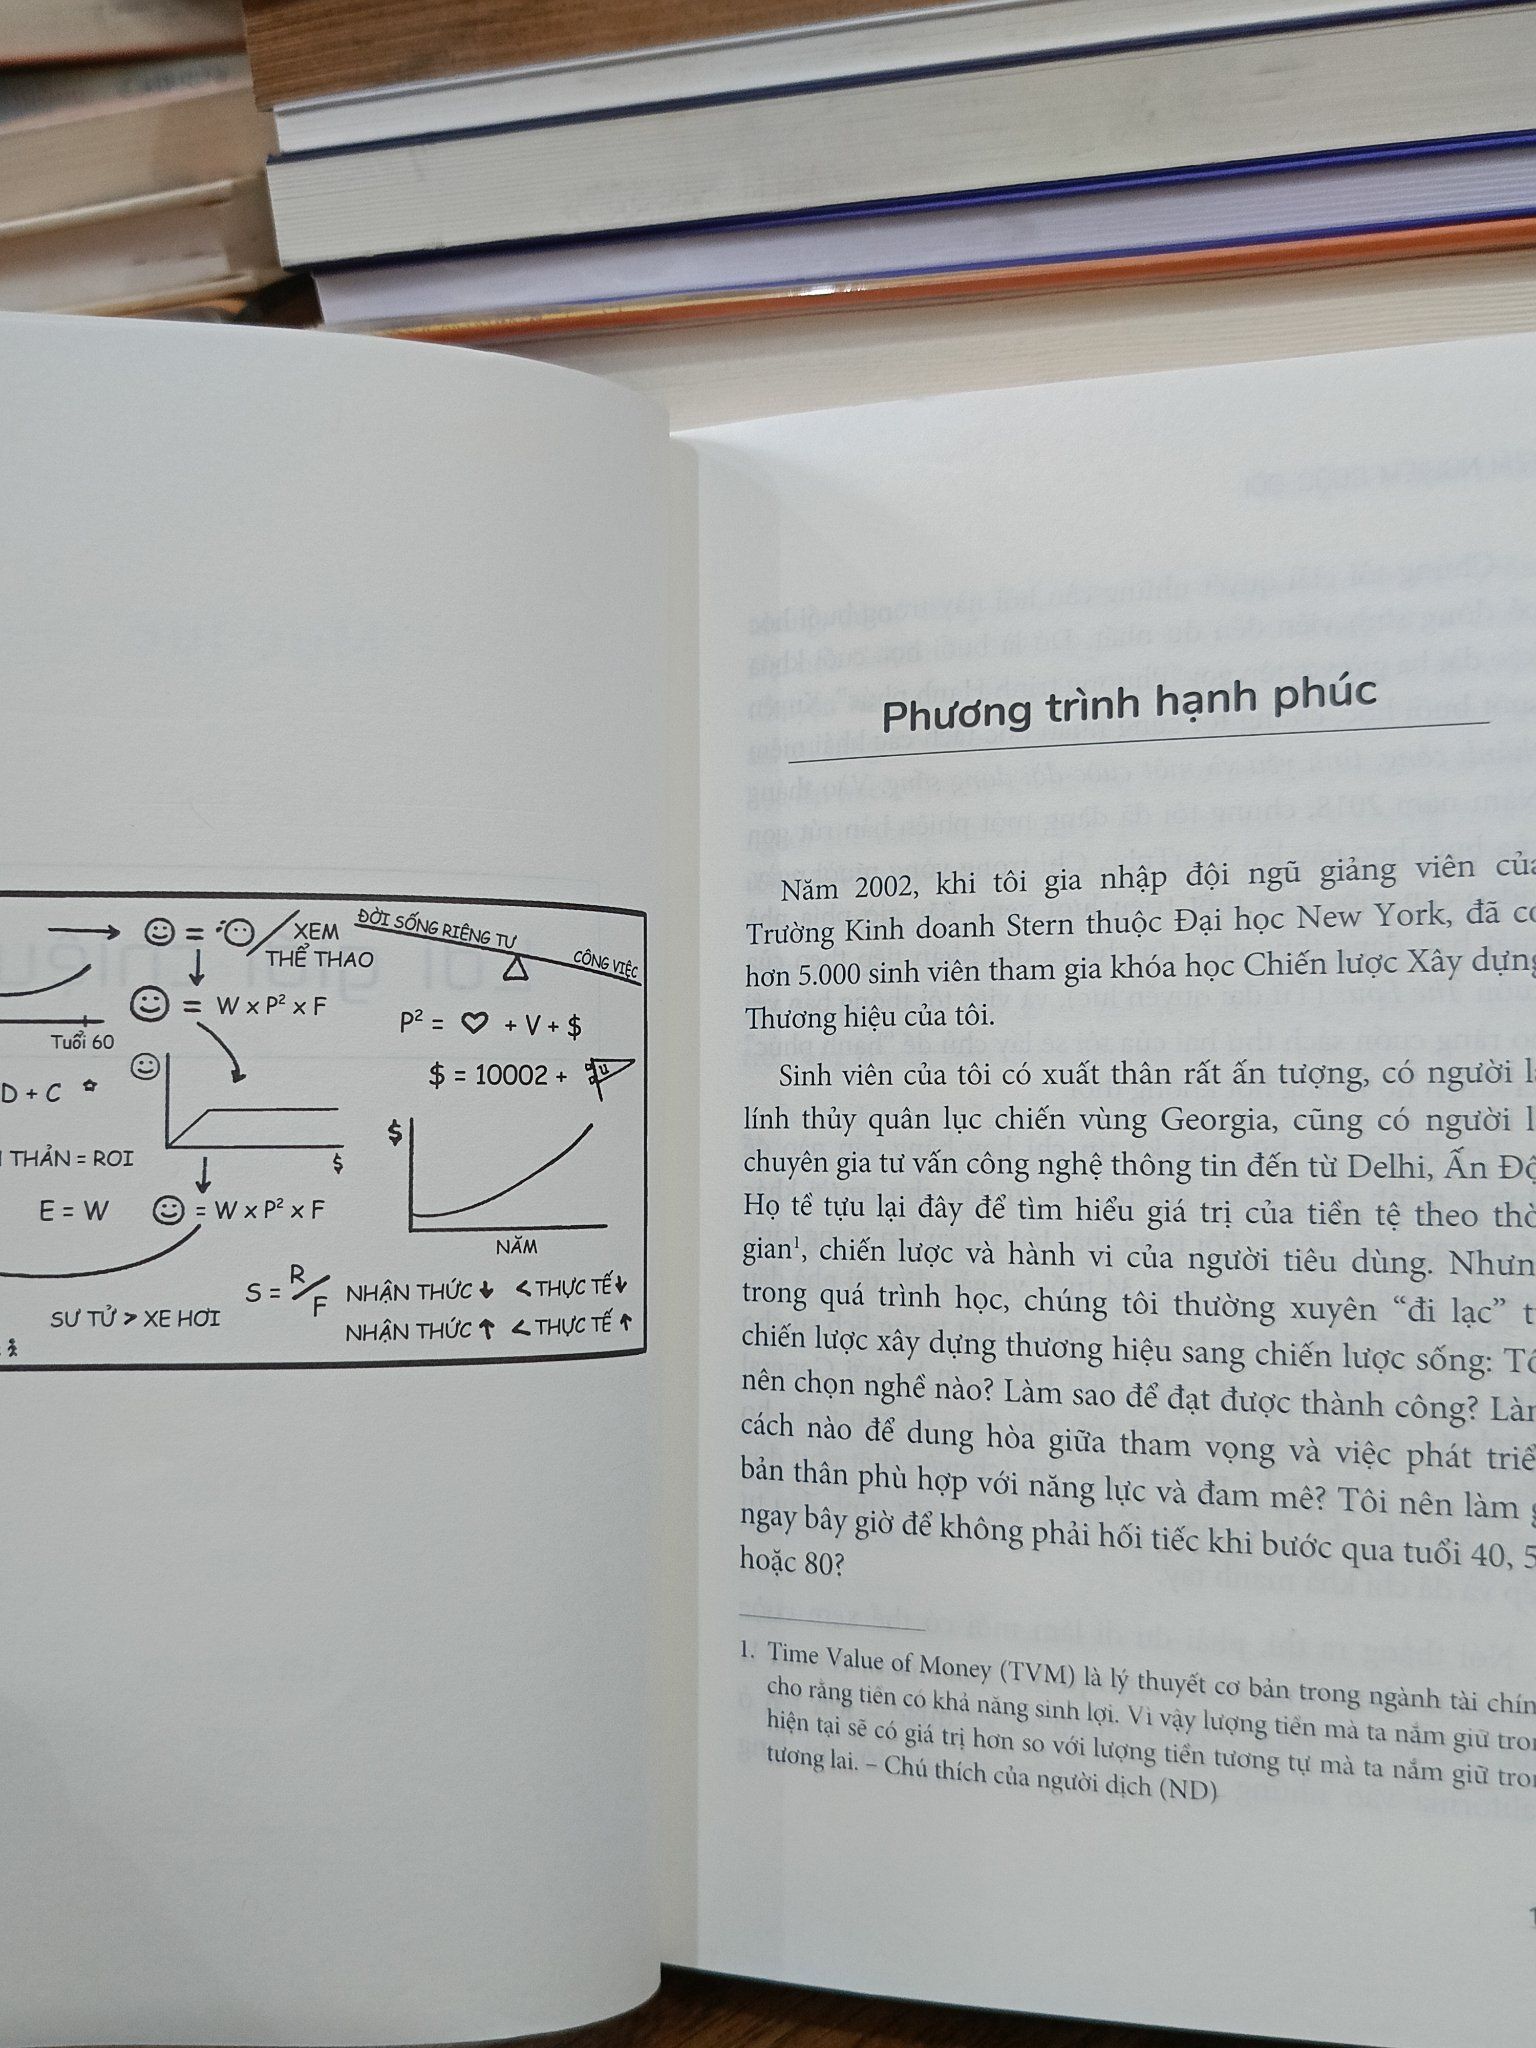 XEM
THỂ THAO
ĐỜI SỐNG RIÊNG TƯ
CÔNG VIỆC
= W x P² x F
Tuổi 60
P² = ♡ + V + $
D + C
$ = 10002 +
$
$
THẢN = ROI
E = W
= W x P² x F
NĂM
S = R/F
NHẬN THỨC ↓ < THỰC TẾ ↓
SƯ TỬ > XE HƠI
NHẬN THỨC ↑ < THỰC TẾ ↑
Phương trình hạnh phúc
Năm 2002, khi tôi gia nhập đội ngũ giảng viên của
Trường Kinh doanh Stern thuộc Đại học New York, đã có
hơn 5.000 sinh viên tham gia khóa học Chiến lược Xây dựng
Thương hiệu của tôi.
Sinh viên của tôi có xuất thân rất ấn tượng, có người
lính thủy quân lục chiến vùng Georgia, cũng có người
chuyên gia tư vấn công nghệ thông tin đến từ Delhi, Ấn Độ
Họ tề tựu lại đây để tìm hiểu giá trị của tiền tệ theo
gian¹, chiến lược và hành vi của người tiêu dùng.
trong quá trình học, chúng tôi thường xuyên “đi lạc”
chiến lược xây dựng thương hiệu sang chiến lược sống:
nên chọn nghề nào? Làm sao để đạt được thành công?
cách nào để dung hòa giữa tham vọng và việc phát
bản thân phù hợp với năng lực và đam mê? Tôi nên làm
ngay bây giờ để không phải hối tiếc khi bước qua tuổi 40,
hoặc 80?
1. Time Value of Money (TVM) là lý thuyết cơ bản trong ngành tài
cho rằng tiền có khả năng sinh lợi. Vì vậy lượng tiền mà ta nắm giữ
hiện tại sẽ có giá trị hơn so với lượng tiền tương tự mà ta nắm giữ
tương lai. – Chú thích của người dịch (ND)